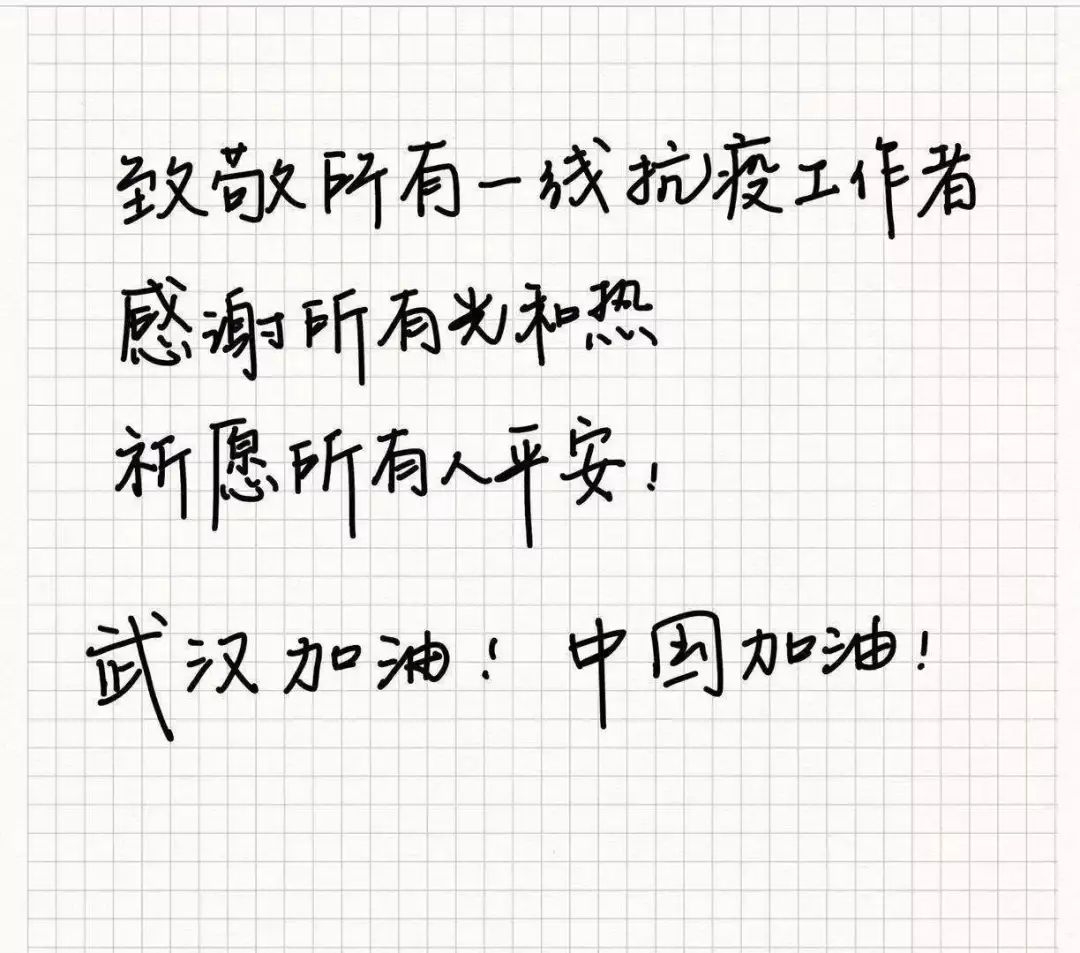 致敬所有一线抗疫工作者
感谢所有光和热
祈愿所有人平安!
武汉加油! 中国加油!